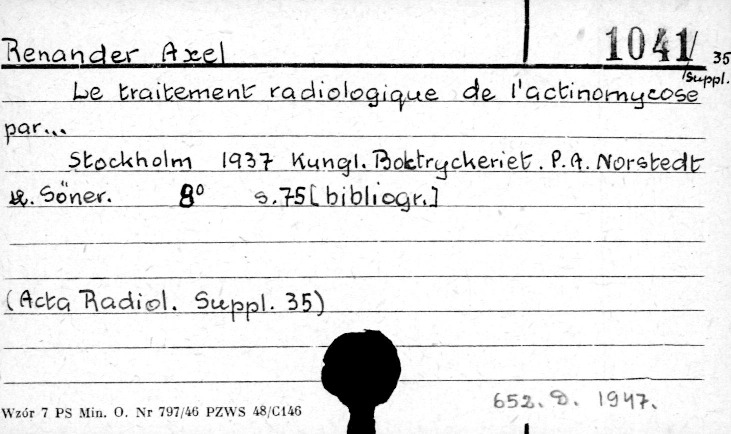 Renander Axel 1041/35
Suppl.
Le traitement radiologique de l'actinomycose
par...
Stockholm 1937 Kungl. Boktryckeriet. P.A. Norstedt
&. Söner. 8° s.75 [bibliogr.]
(Acta Radiol. Suppl. 35)
652. D. 1947.
Wzór 7 PS Min. O. Nr 797/46 PZWS 48/C146